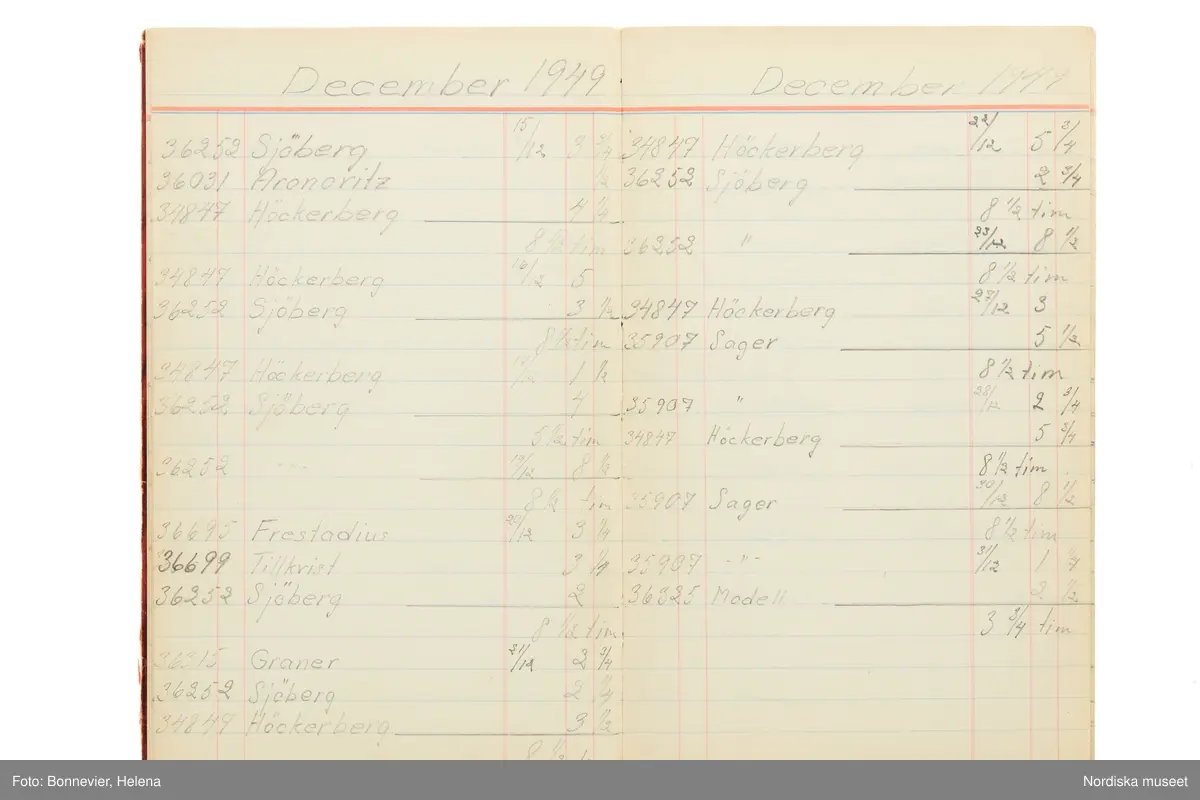 December 1949
36252 Sjöberg 15/12 3 3/4
36031 Aronovitz 1/2
34847 Höckerberg 4 1/4
8 1/2 tim
34847 Höckerberg 16/12 5
36252 Sjöberg 3 1/2
8 1/2 tim
34847 Höckerberg 17/12 1 1/2
36252 Sjöberg 4
5 1/2 tim
36252 - " - 19/12 8 1/2
8 1/2 tim
36695 Frestadius 20/12 3 1/4
36699 Tillkvist 3 1/4
36252 Sjöberg 2
8 1/2 tim
Graner 21/12 2 3/4
36252 Sjöberg 2 1/4
34849 Höckerberg 3 1/2
8 1/2
December 1949
34847 Höckerberg 22/12 5 3/4
36252 Sjöberg 2 3/4
8 1/2 tim
36252 " 23/12 8 1/2
8 1/2 tim
34847 Höckerberg 27/12 3
35907 Sager 5 1/2
8 1/2 tim
35907 " 28/12 2 3/4
34847 Höckerberg 5 3/4
8 1/2 tim
35907 Sager 30/12 8 1/2
8 1/2 tim
35907 - " - 31/12 1 1/4
36325 Modell 2 1/2
3 3/4 tim
Foto: Bonnevier, Helena
Nordiska museet